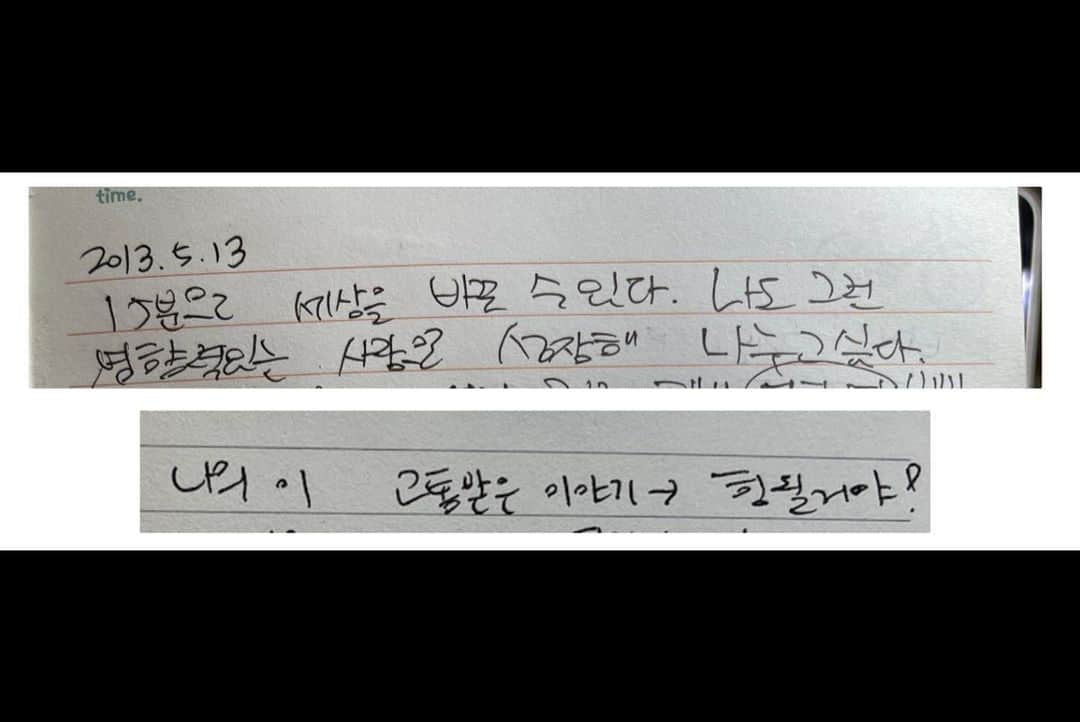 time.
2013.5.13
15분으로 세상을 바꿀 수 있다. 나도 그런
영향력있는 사람으로 성장해 나누고 싶다.
나의 이 고통받은 이야기→ 힘 될거야!